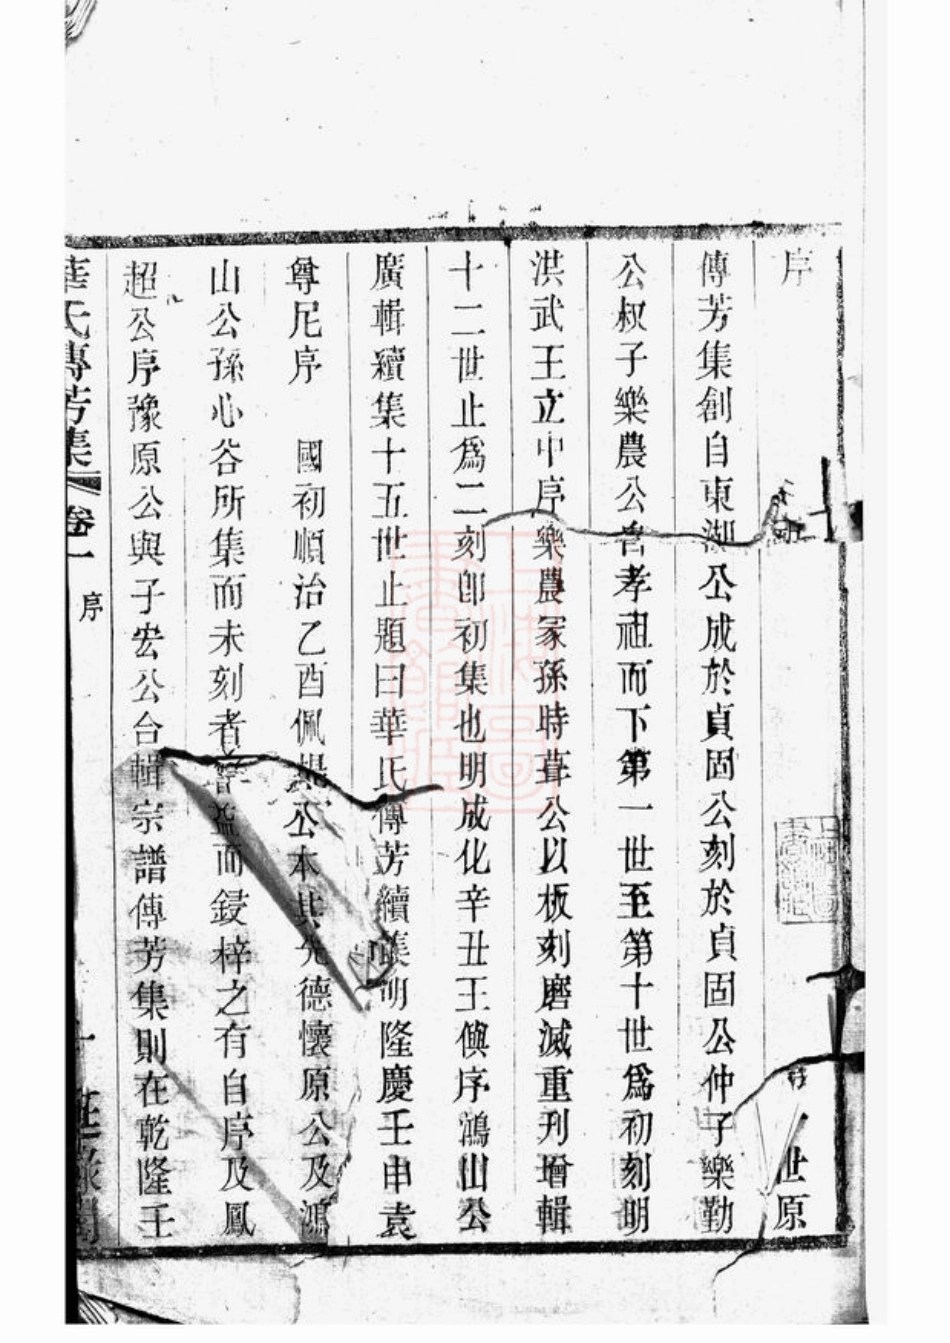 序　世原
傳芳集創自東湖公成於貞固公刻於貞固公仲子樂勤
公叔子樂農公言孝祖而下第一世至第十世爲初刻明
洪武王立中序樂農冢孫時葺公以板刻磨滅重刋增輯
十二世止爲二刻卽初集也明成化辛丑王㒜序鴻山公
廣輯續集十五世止題曰華氏傳芳續集明隆慶壬申袁
尊尼序　國初順治乙酉佩公本其先德懷原公及鴻
山公孫心谷所集而未刻者而鋟梓之有自序及鳳
超公序豫原公與子宏公合輯宗譜傳芳集則在乾隆壬
華氏傳芳集　卷一　序　一